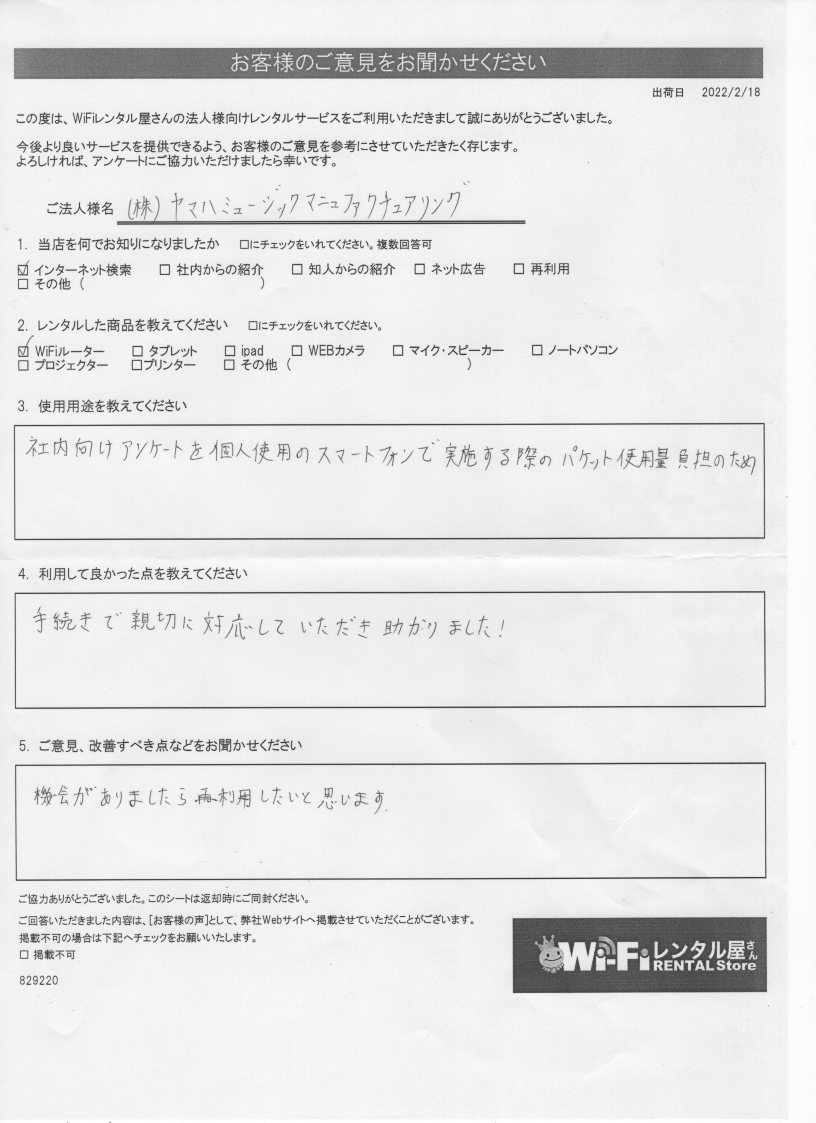 お客様のご意見をお聞かせください
出荷日 2022/2/18
この度は、WiFiレンタル屋さんの法人様向けレンタルサービスをご利用いただきまして誠にありがとうございました。
今後より良いサービスを提供できるよう、お客様のご意見を参考にさせていただきたく存じます。
よろしければ、アンケートにご協力いただけましたら幸いです。
ご法人様名 (株)ヤマハミュージックマニュファクチュアリング
1. 当店を何でお知りになりましたか □にチェックをいれてください。複数回答可
☑ インターネット検索 □ 社内からの紹介 □ 知人からの紹介 □ ネット広告 □ 再利用
□ その他 ( )
2. レンタルした商品を教えてください □にチェックをいれてください。
☑ WiFiルーター □ タブレット □ ipad □ WEBカメラ □ マイク・スピーカー □ ノートパソコン
□ プロジェクター □プリンター □ その他 ( )
3. 使用用途を教えてください
社内向けアンケートを個人使用のスマートフォンで実施する際のパケット使用量負担のため
4. 利用して良かった点を教えてください
手続きで親切に対応していただき助かりました!
5. ご意見、改善すべき点などをお聞かせください
機会がありましたら再利用したいと思います
ご協力ありがとうございました。このシートは返却時にご同封ください。
ご回答いただきました内容は、[お客様の声]として、弊社Webサイトへ掲載させていただくことがございます。
掲載不可の場合は下記へチェックをお願いいたします。
□ 掲載不可
829220
Wi-Fi レンタル屋さん
RENTAL Store